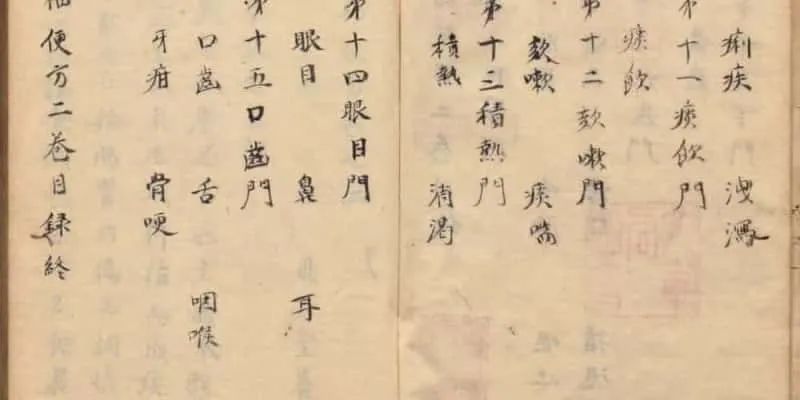 痢疾 洩瀉
第十一痰飲門
痰飲
第十二欬嗽門
欬嗽 痰喘
第十三積熱門
積熱 消渴
第十四眼目門
眼目 鼻 耳
第十五口齒門
口齒 舌 咽喉
牙疳 骨哽
袖便方二卷目録終